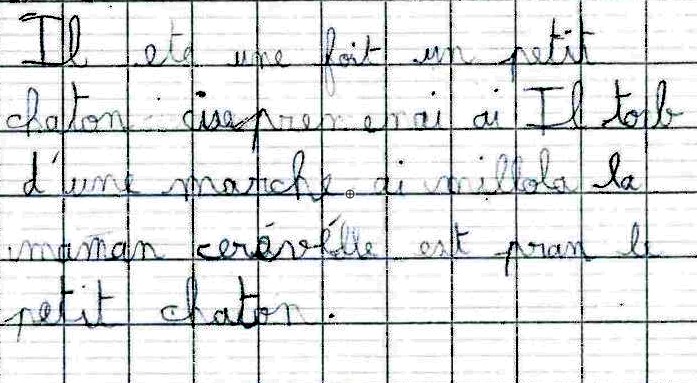 Il eté une foit un petit
chaton ciseprenerai ai Il tonb
d'une marche. ai millola la
maman cerévélle est pran le
petit chaton.